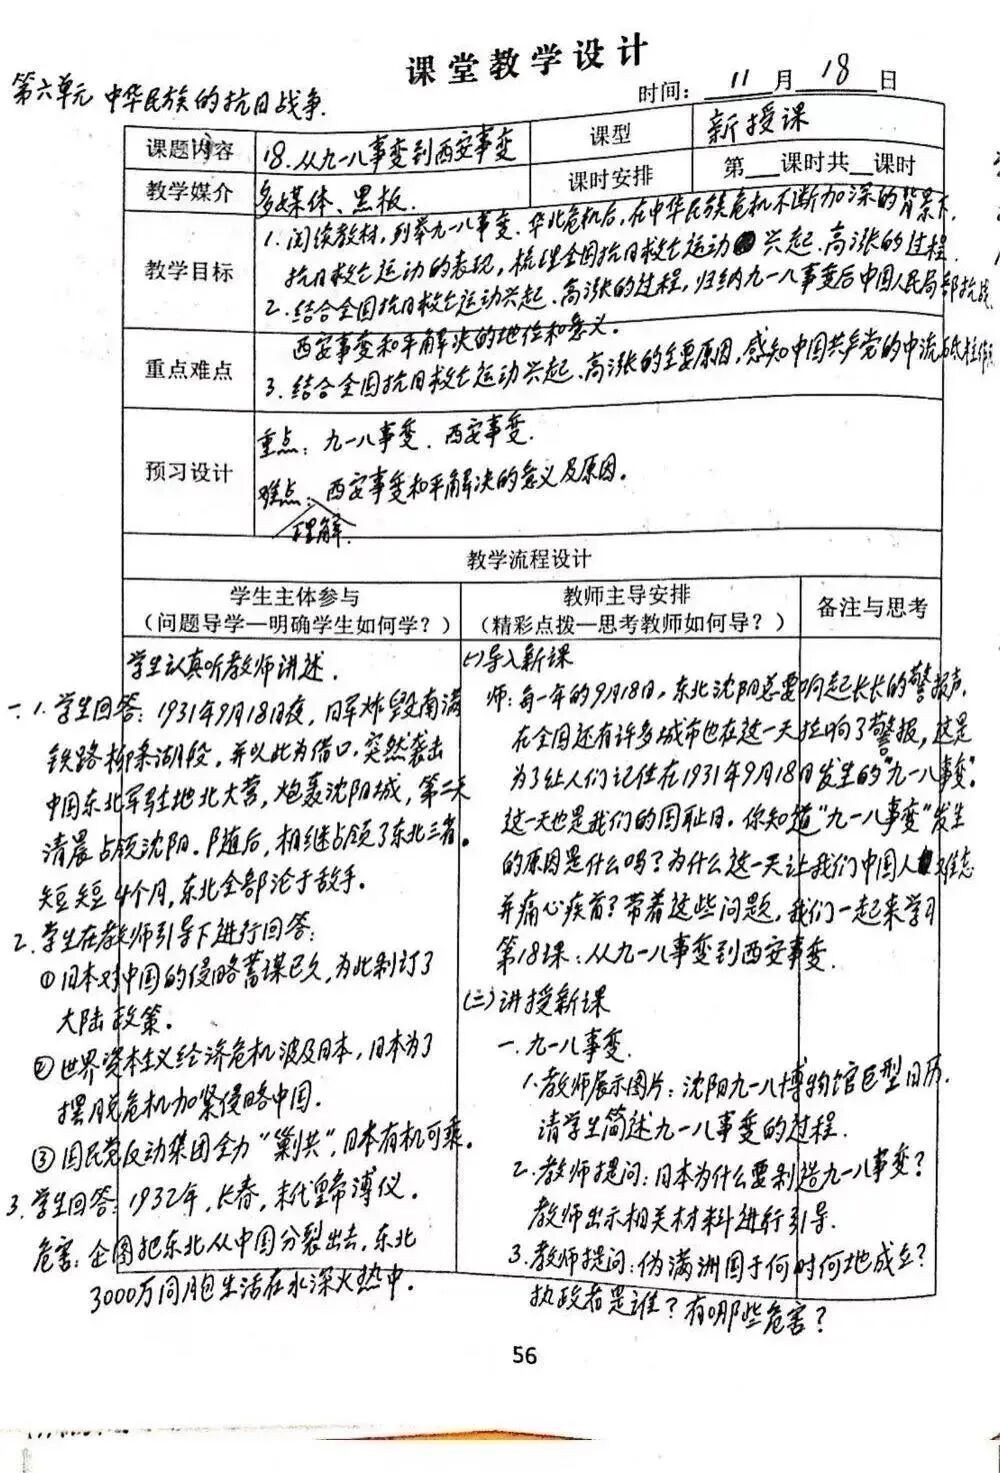 课堂教学设计
第六单元 中华民族的抗日战争.
时间: 11 月 18 日
课题内容 18.从九一八事变到西安事变 课型 新授课
教学媒介 多媒体、黑板. 课时安排 第___课时共__课时
教学目标
1.阅读教材,列举九一八事变、华北危机后,在中华民族危机不断加深的背景下,
抗日救亡运动的表现,梳理全国抗日救亡运动兴起、高涨的过程.
2.结合全国抗日救亡运动兴起、高涨的过程,归纳九一八事变后中国人民局部抗战、
西安事变和平解决的地位和意义.
重点难点
3.结合全国抗日救亡运动兴起、高涨的主要原因,感知中国共产党的中流砥柱作
预习设计
重点:九一八事变、西安事变.
难点:西安事变和平解决的意义及原因.
理解.
教学流程设计
学生主体参与
(问题导学—明确学生如何学?)
教师主导安排
(精彩点拨—思考教师如何导?)
备注与思考
学生认真听教师讲述.
一.1.学生回答:1931年9月18日夜,日军炸毁南满
铁路柳条湖段,并以此为借口,突然袭击
中国东北军驻地北大营,炮轰沈阳城,第二天
清晨占领沈阳.随后,相继占领了东北三省。
短短4个月,东北全部沦于敌手.
2.学生在教师引导下进行回答:
①日本对中国的侵略蓄谋已久,为此制订了
大陆政策。
②世界资本主义经济危机波及日本,日本为了
摆脱危机加紧侵略中国.
③国民党反动集团全力“剿共”,日本有机可乘。
3.学生回答:1932年,长春,末代皇帝溥仪.
危害:企图把东北从中国分裂出去,东北
3000万同胞生活在水深火热中.
(一)导入新课
师:每一年的9月18日,东北沈阳总要响起长长的警报声.
在全国还有许多城市也在这一天拉响了警报,这是
为了让人们记住在1931年9月18日发生的“九一八事变”。
这一天也是我们的国耻日.你知道“九一八事变”发生
的原因是什么吗?为什么这一天让我们中国人难忘
并痛心疾首?带着这些问题,我们一起来学习
第18课:从九一八事变到西安事变.
(二)讲授新课
一.九一八事变.
1.教师展示图片:沈阳九一八博物馆巨型日历.
请学生简述九一八事变的过程.
2.教师提问:日本为什么要制造九一八事变?
教师出示相关材料进行引导.
3.教师提问:伪满洲国于何时何地成立?
执政者是谁?有哪些危害?
56